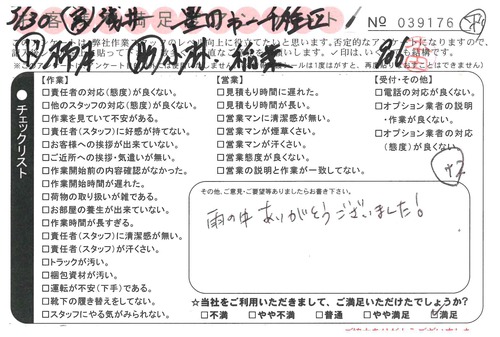 No 039176
チェックリスト
【作業】
□責任者の対応(態度)が良くない。
□他のスタッフの対応(態度)が良くない。
□作業を見ていて不安がある。
□責任者(スタッフ)に好感が持てない。
□お客様への挨拶が出来ていない。
□ご近所への挨拶・気遣いが無い。
□作業開始前の内容確認がなかった。
□作業開始時間が遅れた。
□荷物の取り扱いが雑である。
□お部屋の養生が出来ていない。
□作業時間が長すぎる。
□責任者(スタッフ)に清潔感が無い。
□責任者(スタッフ)が汗くさい。
□トラックが汚い。
□梱包資材が汚い。
□運転が不安(下手)である。
□靴下の履き替えをしてない。
□スタッフにやる気がみられない。
【営業】
□見積もり時間に遅れた。
□見積もり時間が長い。
□営業マンに清潔感が無い。
□営業マンが煙草くさい。
□営業マンが汗くさい。
□営業態度が良くない。
□営業の説明と作業が一致してない。
【受付・その他】
□電話の対応が良くない。
□オプション業者の説明
・作業が良くない。
□オプション業者の対応
(態度)が良くない。
その他、ご意見・ご要望等ありましたらお書き下さい。
雨の中ありがとうございました!
☆当社をご利用いただきまして、ご満足いただけたでしょうか?
□不満 □やや不満 □普通 □やや満足 ☑満足